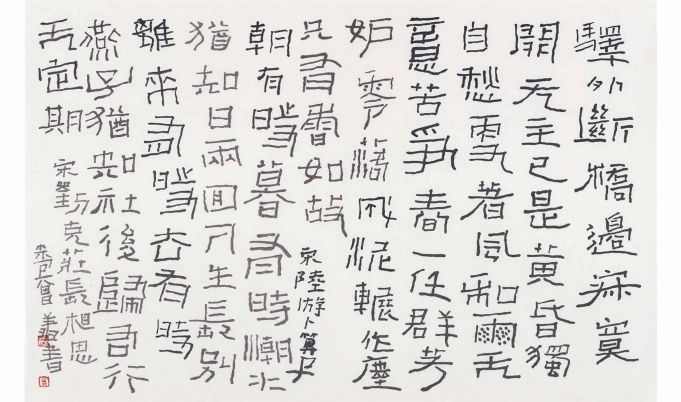 驛外斷橋邊寂寞
開无主已是黃昏獨
自愁更著風和雨无
意苦爭春一任群芳
妒零落成泥輾作塵
只有香如故 宋陸游卜算子
朝有時暮有時潮水
猶知日兩回人生長別
離來有時去有時
燕子猶知社後歸君行
无定期 宋劉克莊長相思
曾 書